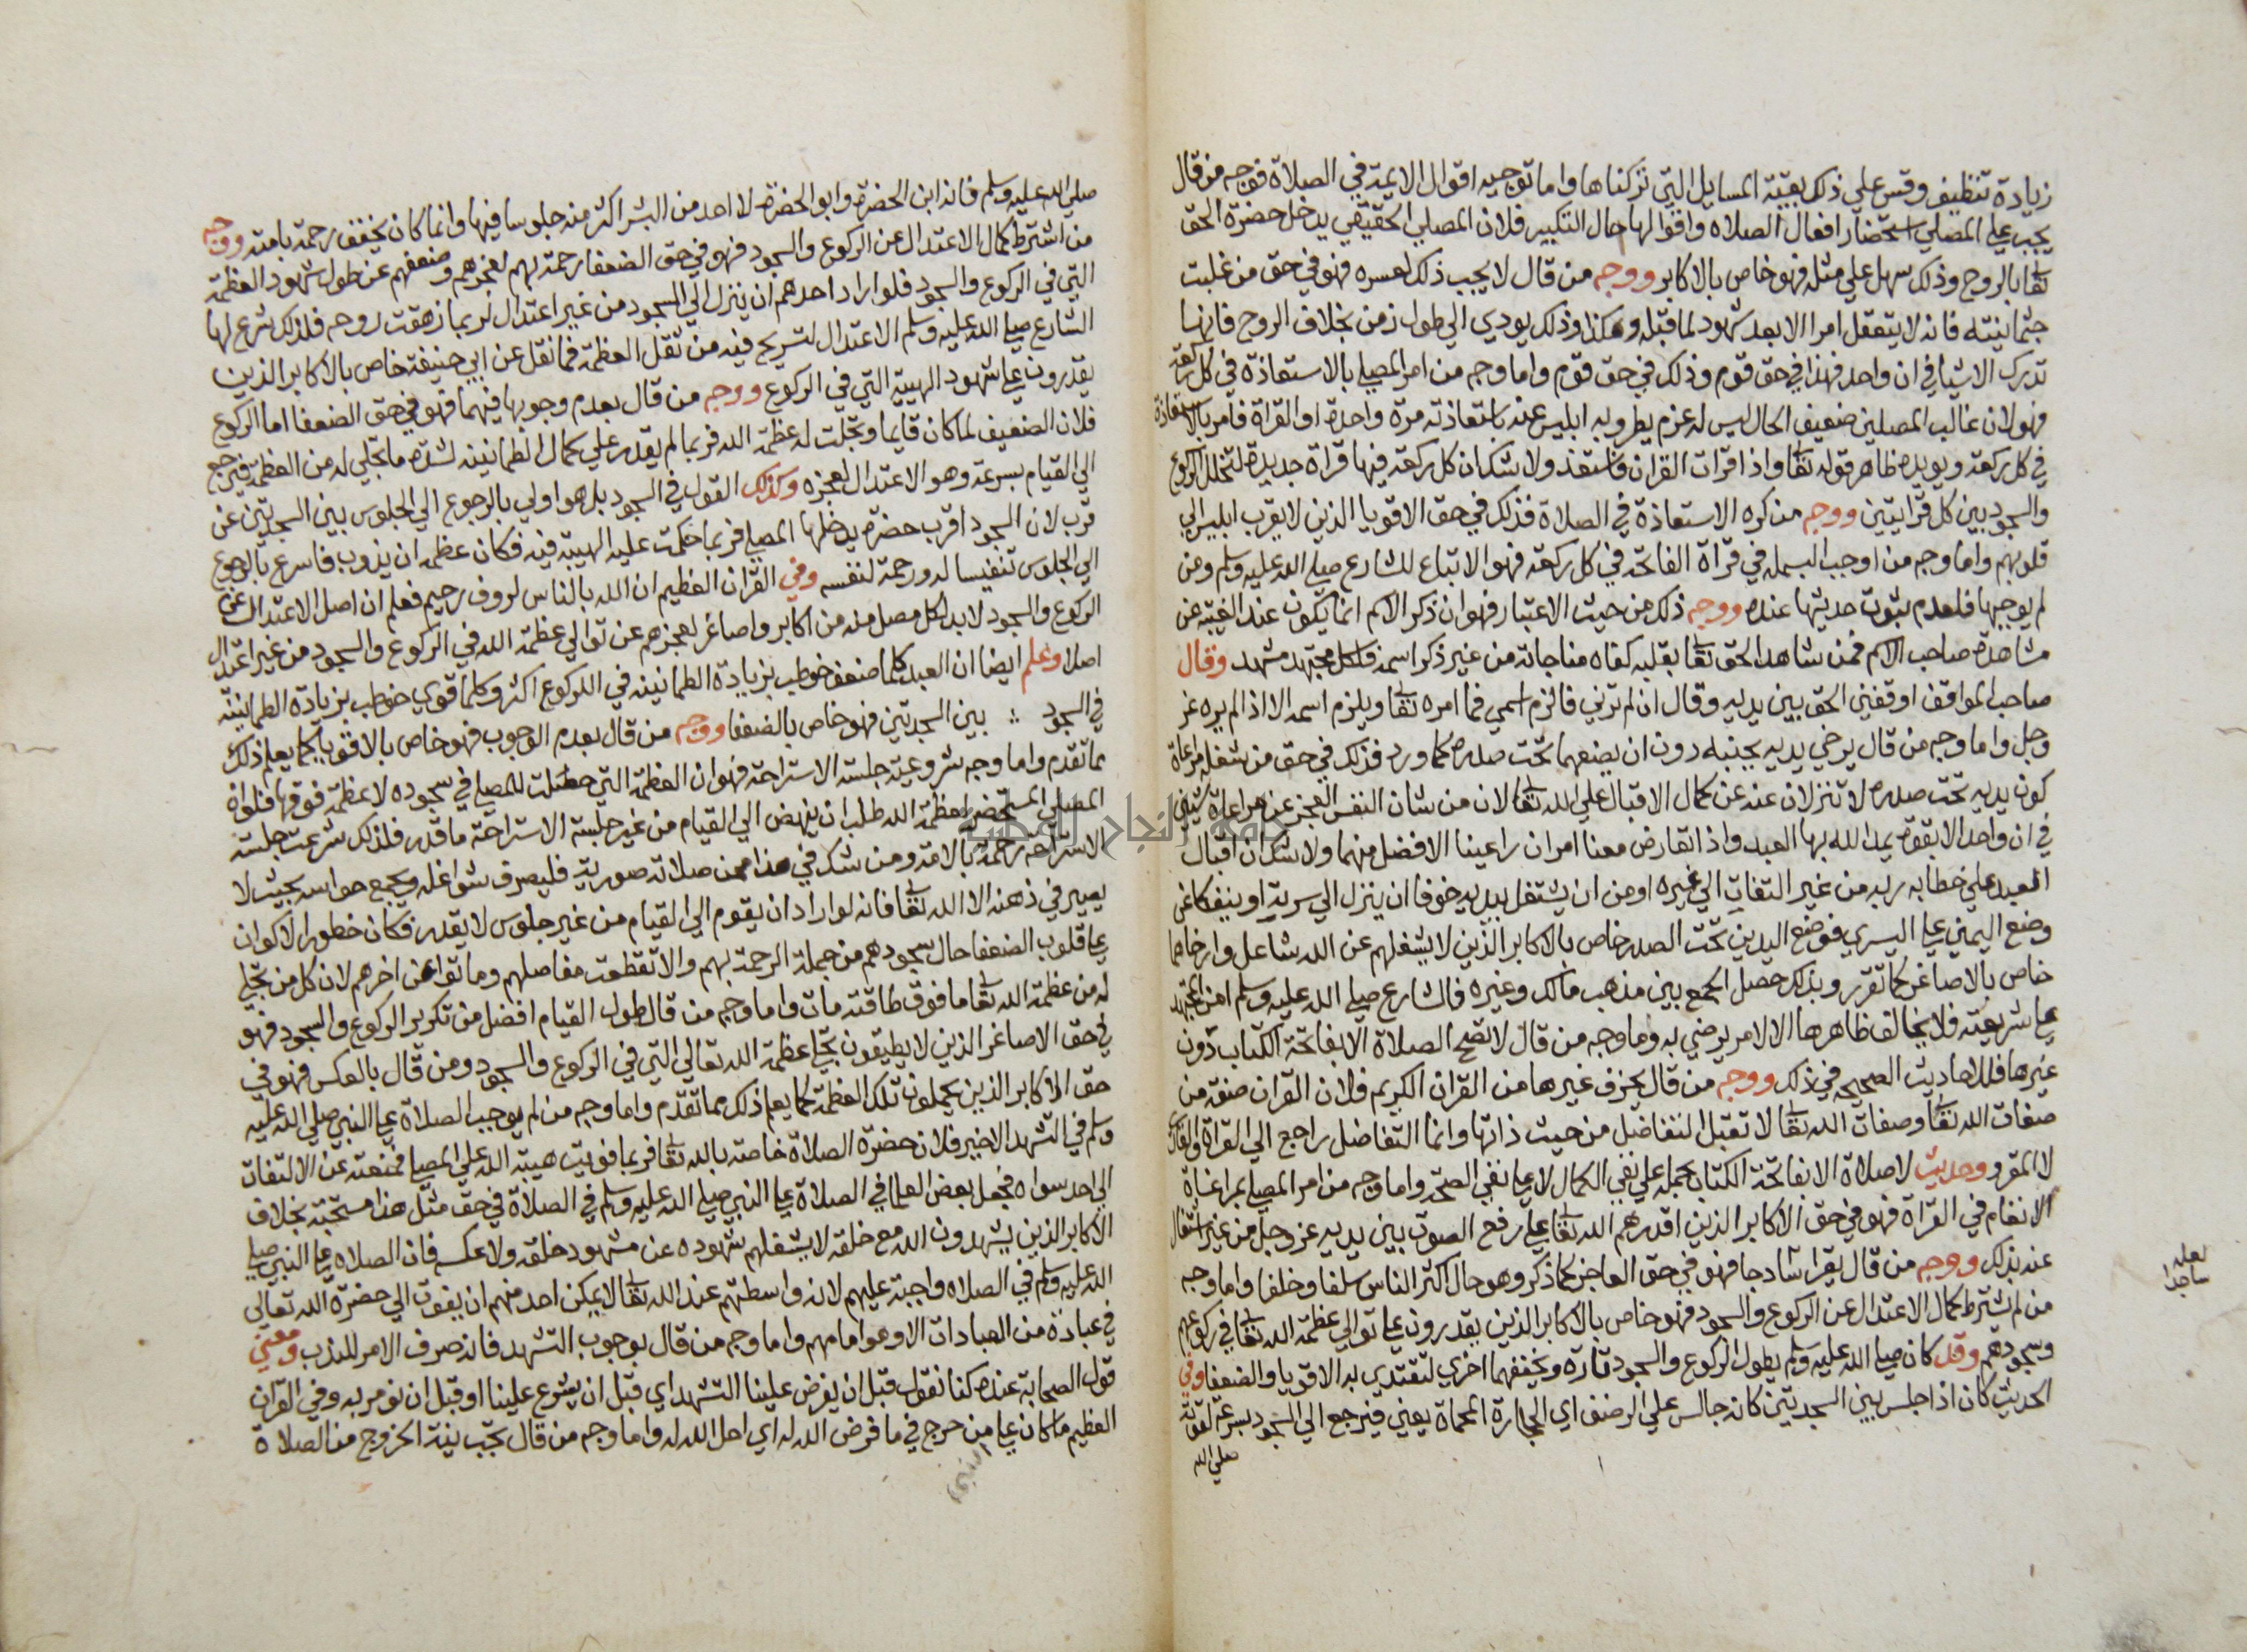 زيادة تنظيف وقس علي ذلك بقية المسايل التي تركناها واما توجيه اقوال الايمة في الصلاة فوجه من قال
يجب علي المصلي استحضار افعال الصلاه واقوالها حال التكبير فلان المصلي الحقيقي يدخل حضرة الحق
تعا بالروح وذلك سهل علي مثله فهو خاص بالاكابر ووجه من قال لا يجب ذلك لعسره فهو في حق من غلبت
جثمانيته فانه لا يتعقل امرا الا بعد شهود لما قبله وهكذا وذلك يودي الي طول زمن بخلاف الروح فانها
تدرك الاشيا في ان واحد فهذا في حق قوم وذلك في حق قوم واما وجه من امر المصلي بالاستعاذة في كل ركعة
فهو لان غالب المصلين ضعيف الحال ليس له عزم يطرد به ابليس عنه باستعاذته مرة واحدة اوالقراة فامر بالاستعاذة
في كل ركعة ويويده ظاهر قوله تعا واذا قرات القران فاستعذ ولا شك ان كل ركعة فيها قراة جديدة لتخلل الركوع
والسجود بين كل قرايتين ووجه من كره الاستعاذة في الصلاة فذلك في حق الاقويا الذين لا يقرب ابليس الي
قلوبهم واما وجه من اوجب البسمله في قراة الفاتحة في كل ركعة فهو الاتباع للشارع صلي الله عليه وسلم ومن
لم يوجبها فلعدم ثبوت حديثها عنده ووجه ذلك من حيث الاعتبار فهو ان ذكر الاسم انما يكون عند الغيبة عن
مشاهدة صاحب الاسم فمن شاهد الحق تعا بقلبه كفاه مناجاته من غير ذكر اسمه فلكل مجتهد مشهد وقال
صاحب المواقف اوقفني الحق بين يديه وقال ان لم ترني فالزم اسمي فما امره تعا ويلزم اسمه الا اذا لم يره عز
وجل واما وجه من قال يرخي يديه بجنبه دون ان يضعهما تحت صدره كما ورد فذلك في حق من شغله مراعاة
كون يديه تحت صدره لا تنزلان عنه عن كمال الاقبال علي الله تعا لان من شان النفس العجز عن مراعاة شيين
في ان واحد الا بقوة يمد الله بها العبد واذا تعارض معنا امران راعينا الافضل منهما ولا شك ان اقبال
العبد علي خطابه ربه من غير التفات الي غيره اومن ان يشتغل بيديه خوفا ان ينزل الي سرته او ينفكا عن
وضع اليمني علي اليسري فوضع اليدين تحت الصدر خاص بالاكابر الذين لا يشغلهم عن الله شاغل وارخاهما
خاص بالاصاغر كما تقرر وبذلك حصل الجمع بين مذهب مالك وغيره فالشارع صلي الله عليه وسلم امن المجتهد
علي شريعته فلا يخالف ظاهرها الا لامر يرضي به وما وجه من قال لا تصح الصلاة الا بفاتحة الكتاب دون
غيرها فللاحاديث الصحيحه في ذلك ووجه من قال يجزي غيرها من القران الكريم فلان القران صفة من
صفات الله تعا وصفات الله تعا لا تقبل التفاضل من حيث ذاتها وانما التفاضل راجع الي القراة والقاري
لا المقرو وحديث لا صلاة الا بفاتحة الكتاب يحمله علي نفي الكمال لا علي نفي الصحة واما وجه من امر المصلي بمراعاة
الانغام في القراة فهو في حق الاكابر الذين اقدرهم الله تعا علي رفع الصوت بين يديه عز وجل من غير اشتغال
عنه بذلك ووجه من قال يقرا شادجا فهو في حق العاجز كما ذكر وهو حال اكثر الناس سلفا وخلفا واما وجه
من لم يشترط كمال الاعتدال عن الركوع والسجود فهو خاص بالاكابر الذين يقدرون علي توالي عظمة الله تعا في ركوعهم
وسجودهم وقد كان صلي الله عليه وسلم يطول الركوع والسجود تارة ويخففهما اخري لتقتدي به الاقويا والضعفا وفي
الحديث كان اذا جلس بين السجدتين كانه جالس علي الرضف اي الحجارة المحماة يعني فيرجع الي السجود بسرعة لقوته
صلي الله
لعله
ساجدا
صلي الله عليه وسلم فانه ابن الحضرة وابو الحضرة لا احد من البشر اكثر منه جلوسا فيها وانما كان يخفف رحمة بامته ووجه
من اشترط كمال الاعتدال عن الركوع والسجود فهو في حق الضعفا رحمة بهم لعجزهم وضعفهم عن طول شهود العظمة
التي في الركوع والسجود فلو اراد احدهم ان ينزل الي السجود من غير اعتدال لربما زهقت روحه فلذلك شرع لها
الشارع صلي الله عليه وسلم الاعتدال لتستريح فيه من ثقل العظمة فما نقل عن ابي حنيفة خاص بالاكابر الذين
يقدرون علي شهود الهيبة التي في الركوع ووجه من قال بعدم وجوبها فيهما فهو في حق الضعفا اما الركوع
فلان الضعيف لما كان قايما وتجلت له عظمة الله فربما لم يقدر علي كمال الطمانينه لشدة ما تجلي له من العظمة فيرجع
الي القيام بسرعة وهو الاعتدال لعجزه وكذلك القول في السجود بل هو اولي بالرجوع الي الجلوس بين السجدتين عن
قرب لان السجود اقرب حضرة يدخلها المصلي فربما حكمت عليه الهيبة فيه فكان عظمه ان يذوب فاسرع بالرجوع
الي الجلوس تنفيسا له ورحمة لنفسه وفي القران العظيم ان الله بالناس لروف رحيم فعلم ان اصل الاعتدال عن
الركوع والسجود لا بد لكل مصل منه من اكابر واصاغر لعجزهم عن توالي عظمة الله في الركوع والسجود من غير اعتدال
اصلا وعلم ايضا ان العبد كلما ضعف خوطب بزيادة الطمانينه في الركوع اكثر وكلما قوي خوطب بزيادة الطمانينة
في السجود ؞ بين السجدتين فهو خاص بالضعفا ووجه من قال بعدم الوجوب فهو خاص بالاقويا كما يعلم ذلك
مما تقدم واما وجه مشروعية جلسة الاستراحة فهو ان العظمة التي حصلت للمصلي في سجوده لا عظمة فوقها فلو ان
المصلي المستحضر لعظمة الله طلب ان ينهض الي القيام من غير جلسة الاستراحة ما قدر فلذلك شرعت جلسة
الاستراحة رحمة بالامة ومن شك في هذا ممن صلاته صورية فليصرف شواغله ويجمع حواسه بحيث لا
يصير في ذهنه الا الله تعا فانه لو اراد ان يقوم الي القيام من غير جلوس لا يقدر فكان خطور الاكوان
علي قلوب الضعفا حال سجودهم من جملة الرحمة بهم والا تقطعت مفاصلهم وماتوا عن اخرهم لان كل من تجلي
له من عظمة الله تعا ما فوق طاقته مات واما وجه من قال طول القيام افضل من تكرير الركوع والسجود فهو
في حق الاصاغر الذين لا يطيقون تجلي عظمة الله تعالي التي في الركوع والسجود ومن قال بالعكس فهو في
حق الاكابر الذين يحملون تلك العظمة كما يعلم ذلك مما تقدم واما وجه من لم يوجب الصلاة علي النبي صلي الله عليه
وسلم في التشهد الاخير فلان حضرة الصلاة خاصة بالله تعا فربما قويت هيبة الله علي المصلي فمنعته عن الالتفات
الي احد سواه فجعل بعض العلما في الصلاة علي النبي صلي الله عليه وسلم في الصلاة في حق مثل هذا مستحبة بخلاف
الاكابر الذين يشهدون الله مع خلقه لا يشغلهم شهوده عن مشهود خلقه ولا عكسه فان الصلاه علي النبي صلي
الله عليه وسلم في الصلاه واجبة عليهم لانه واسطتهم عند الله تعا لا يمكن احد منهم ان يفوت الي حضرة الله تعالي
في عبادة من العبادات الا وهو امامهم واما وجه من قال بوجوب التشهد فانه صرف الامر للندب ومعني
قول الصحابة عنده كنا نقول قبل ان يفرض علينا التشهد اي قبل ان يشرع علينا او قبل ان نومر به وفي القران
العظيم ما كان علي من حرج في ما فرض الله له اي احل الله له واما وجه من قال تجب نية الخروج من الصلاة
النبي
جامعة النجاح الوطنية